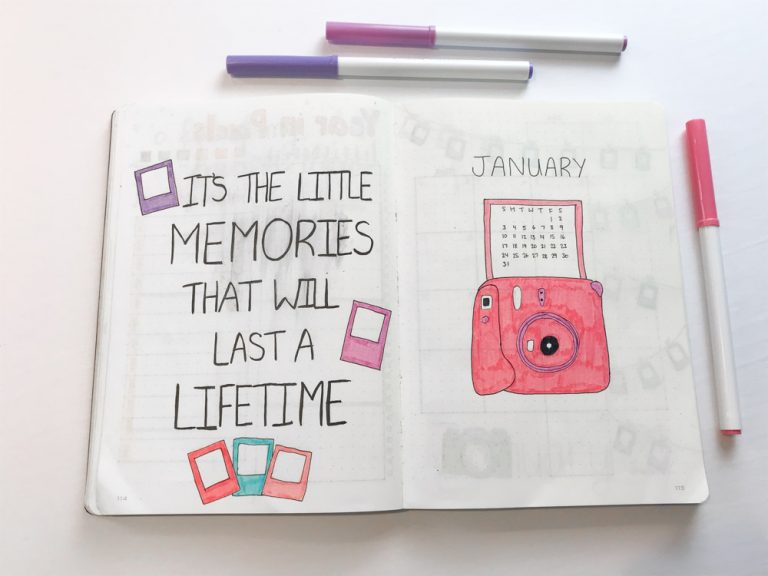 IT'S THE LITTLE
MEMORIES
THAT WILL
LAST A
LIFETIME
JANUARY
S M T W T F S
1 2
3 4 5 6 7 8 9
10 11 12 13 14 15 16
17 18 19 20 21 22 23
24 25 26 27 28 29 30
31